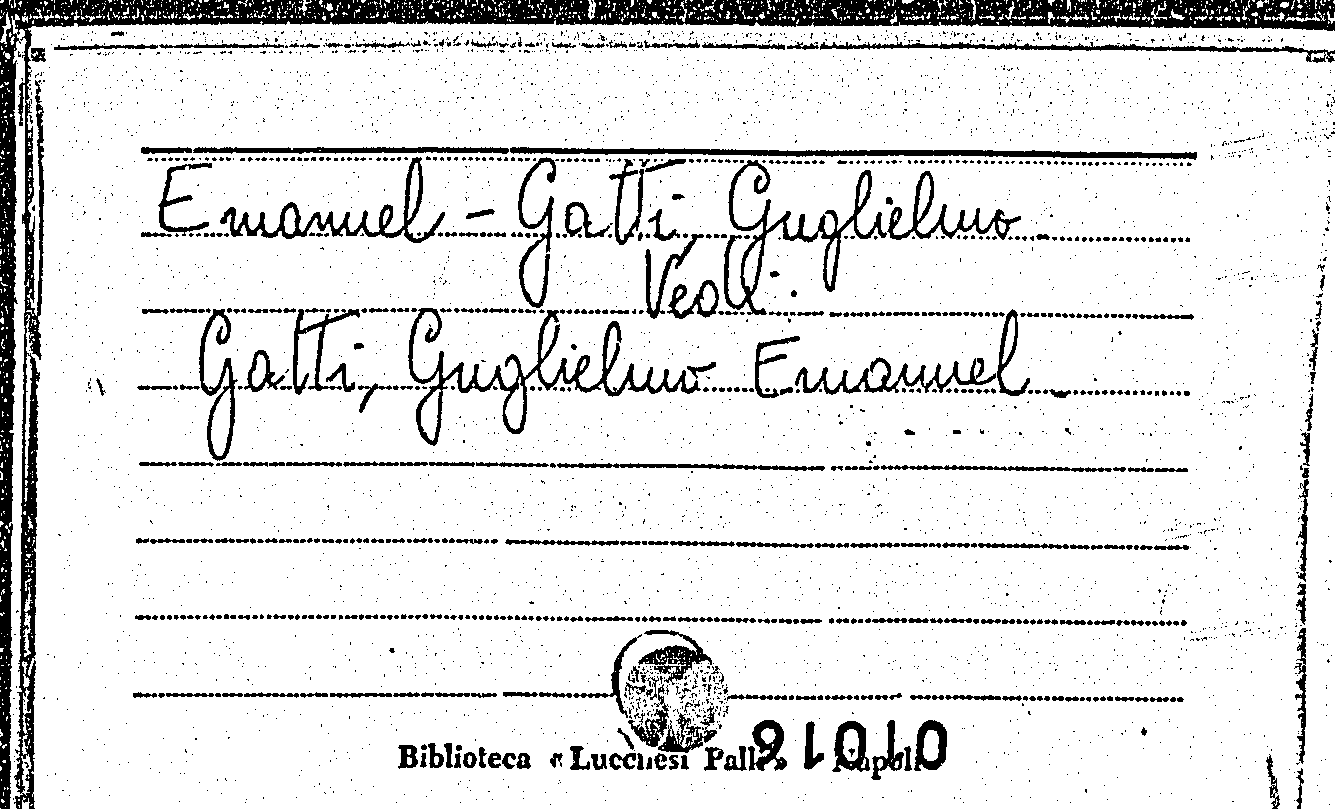 Emanuel - Gatti Guglielmo.
Vedi:
Gatti, Guglielmo Emanuel.
Biblioteca « Lucchesi Palli » Napoli